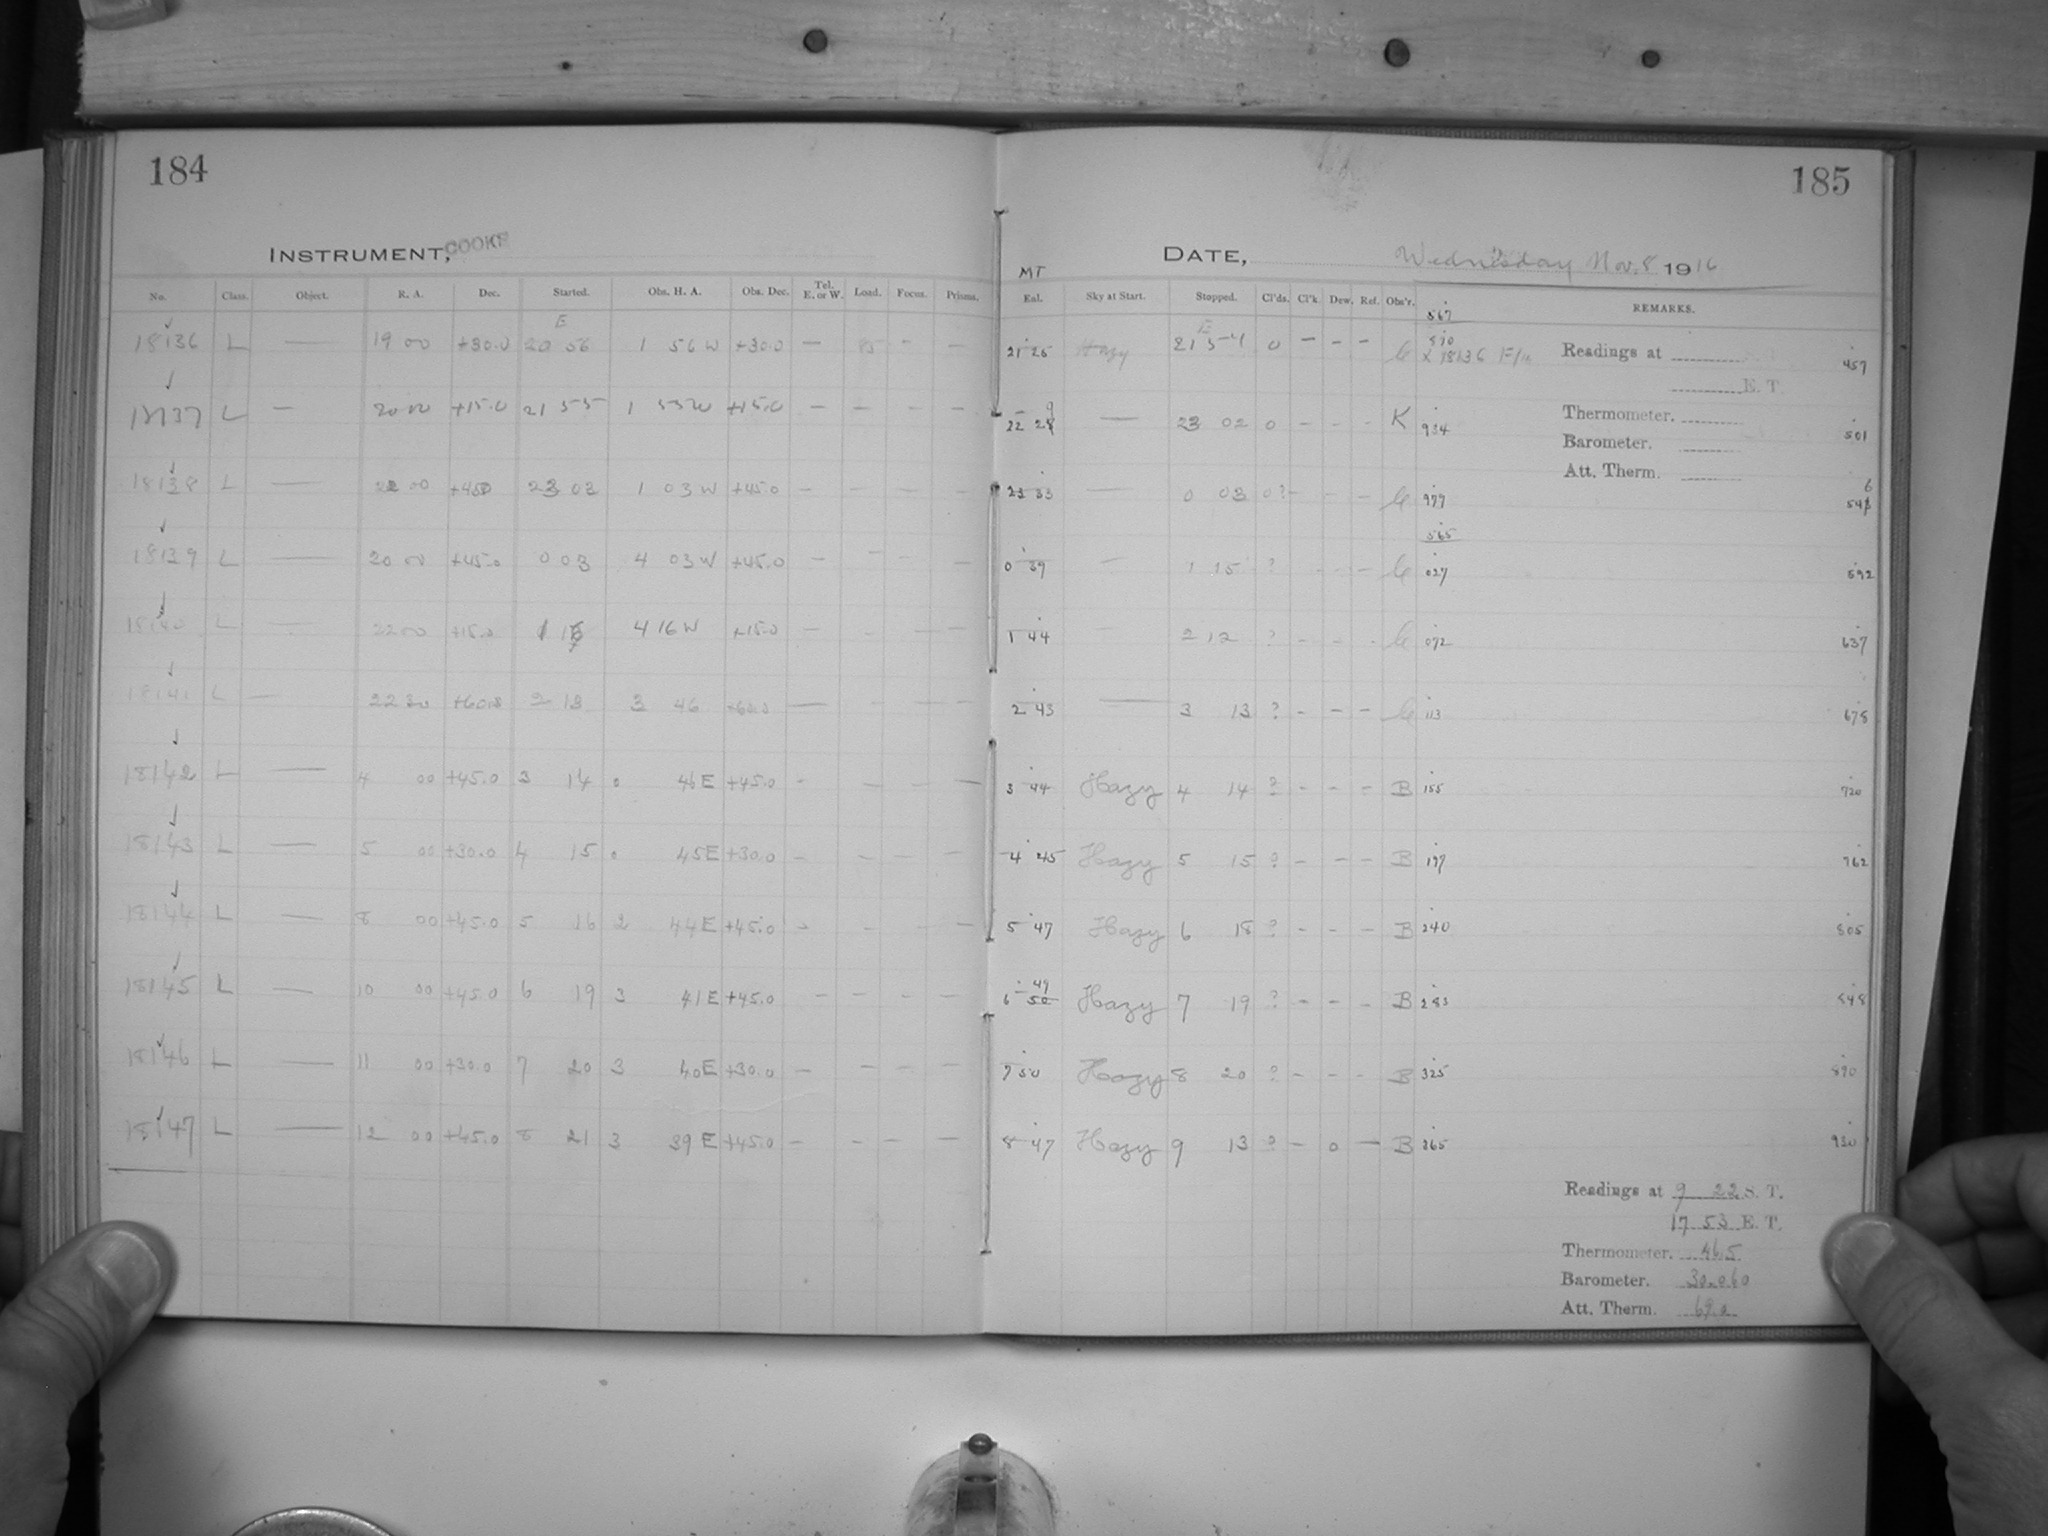 184
INSTRUMENT, COOKE
No. Class. Object. R. A. Dec. Started. Obs. H. A. Obs. Dec. Tel. E. or W. Load. Focus. Prisms.
18136 L — 19 00 +30.0 E 20 56 1 56 W +30.0 — 85 - —
18137 L — 20 00 +15.0 21 55 1 55 W +15.0 — — — —
18138 L — 22 00 +45.0 23 03 1 03 W +45.0 — — — —
18139 L — 20 00 +45.0 0 03 4 03 W +45.0 — — —
18140 L — 22 00 +15.0 1 16 4 16 W +15.0 — - — —
18141 L — 22 30 +60.0 2 13 3 46 +60.0 — - — —
18142 L — 4 00 +45.0 3 14 0 46 E +45.0 - — — —
18143 L — 5 00 +30.0 4 15 0 45 E +30.0 - - - —
18144 L — 8 00 +45.0 5 16 2 44 E +45.0 - - - —
18145 L — 10 00 +45.0 6 19 3 41 E +45.0 - - - —
18146 L — 11 00 +30.0 7 20 3 40 E +30.0 — - - —
18147 L — 12 00 +45.0 8 21 3 39 E +45.0 - - - —
185
DATE, Wednesday Nov. 8 1916
MT
Eal. Sky at Start. Stopped. Cl'ds. Cl'k. Dew. Ref. Obs'r. REMARKS.
567
21 25 Hazy E 21 54 0 - - - 890 x 18136 Readings at 457
E. T.
22 29 — 23 02 0 - - - K 934 Thermometer. 501
Barometer.
Att. Therm.
23 33 — 0 03 0? - - - 977 546
565
0 39 — 1 15 ? - - - 027 592
1 44 2 12 ? - - - 072 637
2 43 — 3 13 ? - - - 113 678
3 44 Hazy 4 14 ? - - - B 155 720
4 45 Hazy 5 15 ? - - - B 197 762
5 47 Hazy 6 18 ? - - - B 240 805
6 49 50 Hazy 7 19 ? - - - B 283 848
7 50 Hazy 8 20 ? - - - B 325 890
8 47 Hazy 9 13 ? - 0 - B 365 930
Readings at 9 22 S. T.
17 53 E. T.
Thermometer. 46.5
Barometer. 30.060
Att. Therm. 69.0